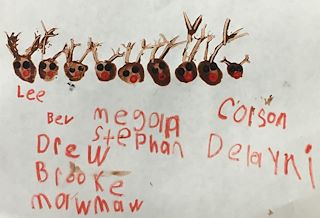 Lee
Bev
megan
Corson
Stephan
Drew
Delayni
Brooke
mawmaw